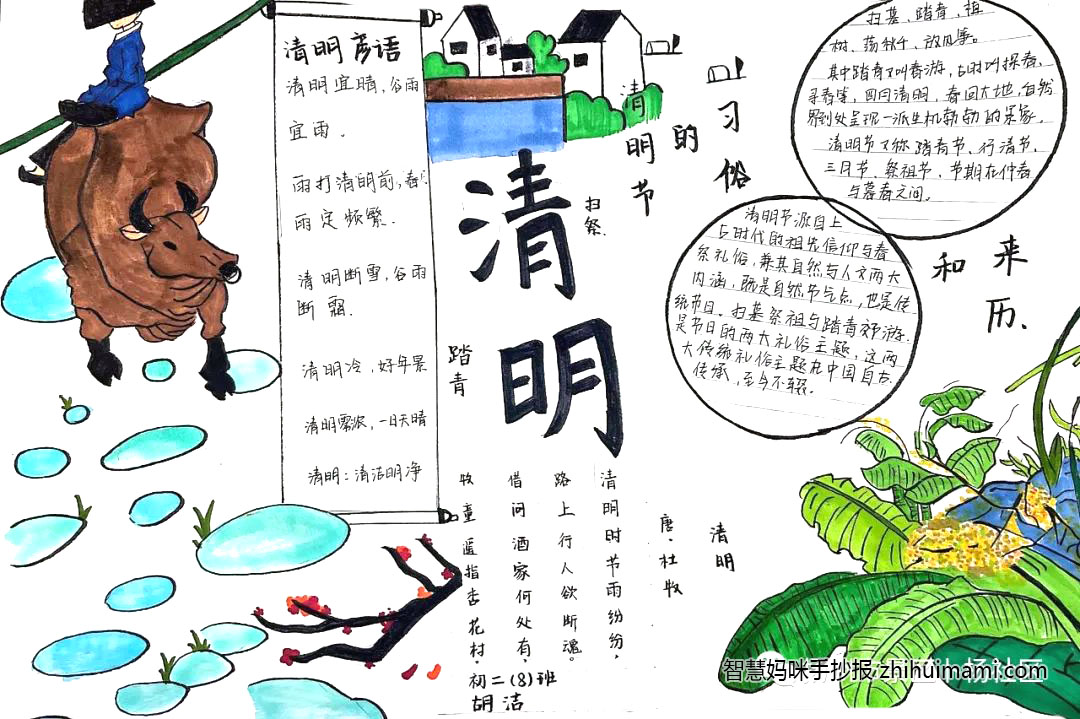 清明彦语
清明宜晴，谷雨
宜雨。
雨打清明前，春
雨定频繁.
清明断雪，谷雨
断霜.
清明冷，好年景
清明雾浓，一日天晴
清明：清洁明净
清明
踏青
扫祭
清明节
的习俗
和来历.
扫墓、踏青、植
树、荡秋千、放风筝。
其中踏青又叫春游，古时叫探春，
寻春等，四月清明，春回大地，自然
界到处呈现一派生机勃勃的景象。
清明节又称踏青节、行清节、
三月节、祭祖节，节期在仲春
与暮春之间。
清明节源自上
古时代的祖先信仰与春
祭礼俗，兼具自然与人文两大
内涵，既是自然节气点，也是传
统节日。扫墓祭祖与踏青郊游
是节日的两大礼俗主题，这两
大传统礼俗主题在中国自古
传承，至今不辍。
清明
唐·杜牧
清明时节雨纷纷，
路上行人欲断魂。
借问酒家何处有，
牧童遥指杏花村.
初二(8)班
胡洁
智慧妈咪手抄报 zhihuimami.com
杨社区